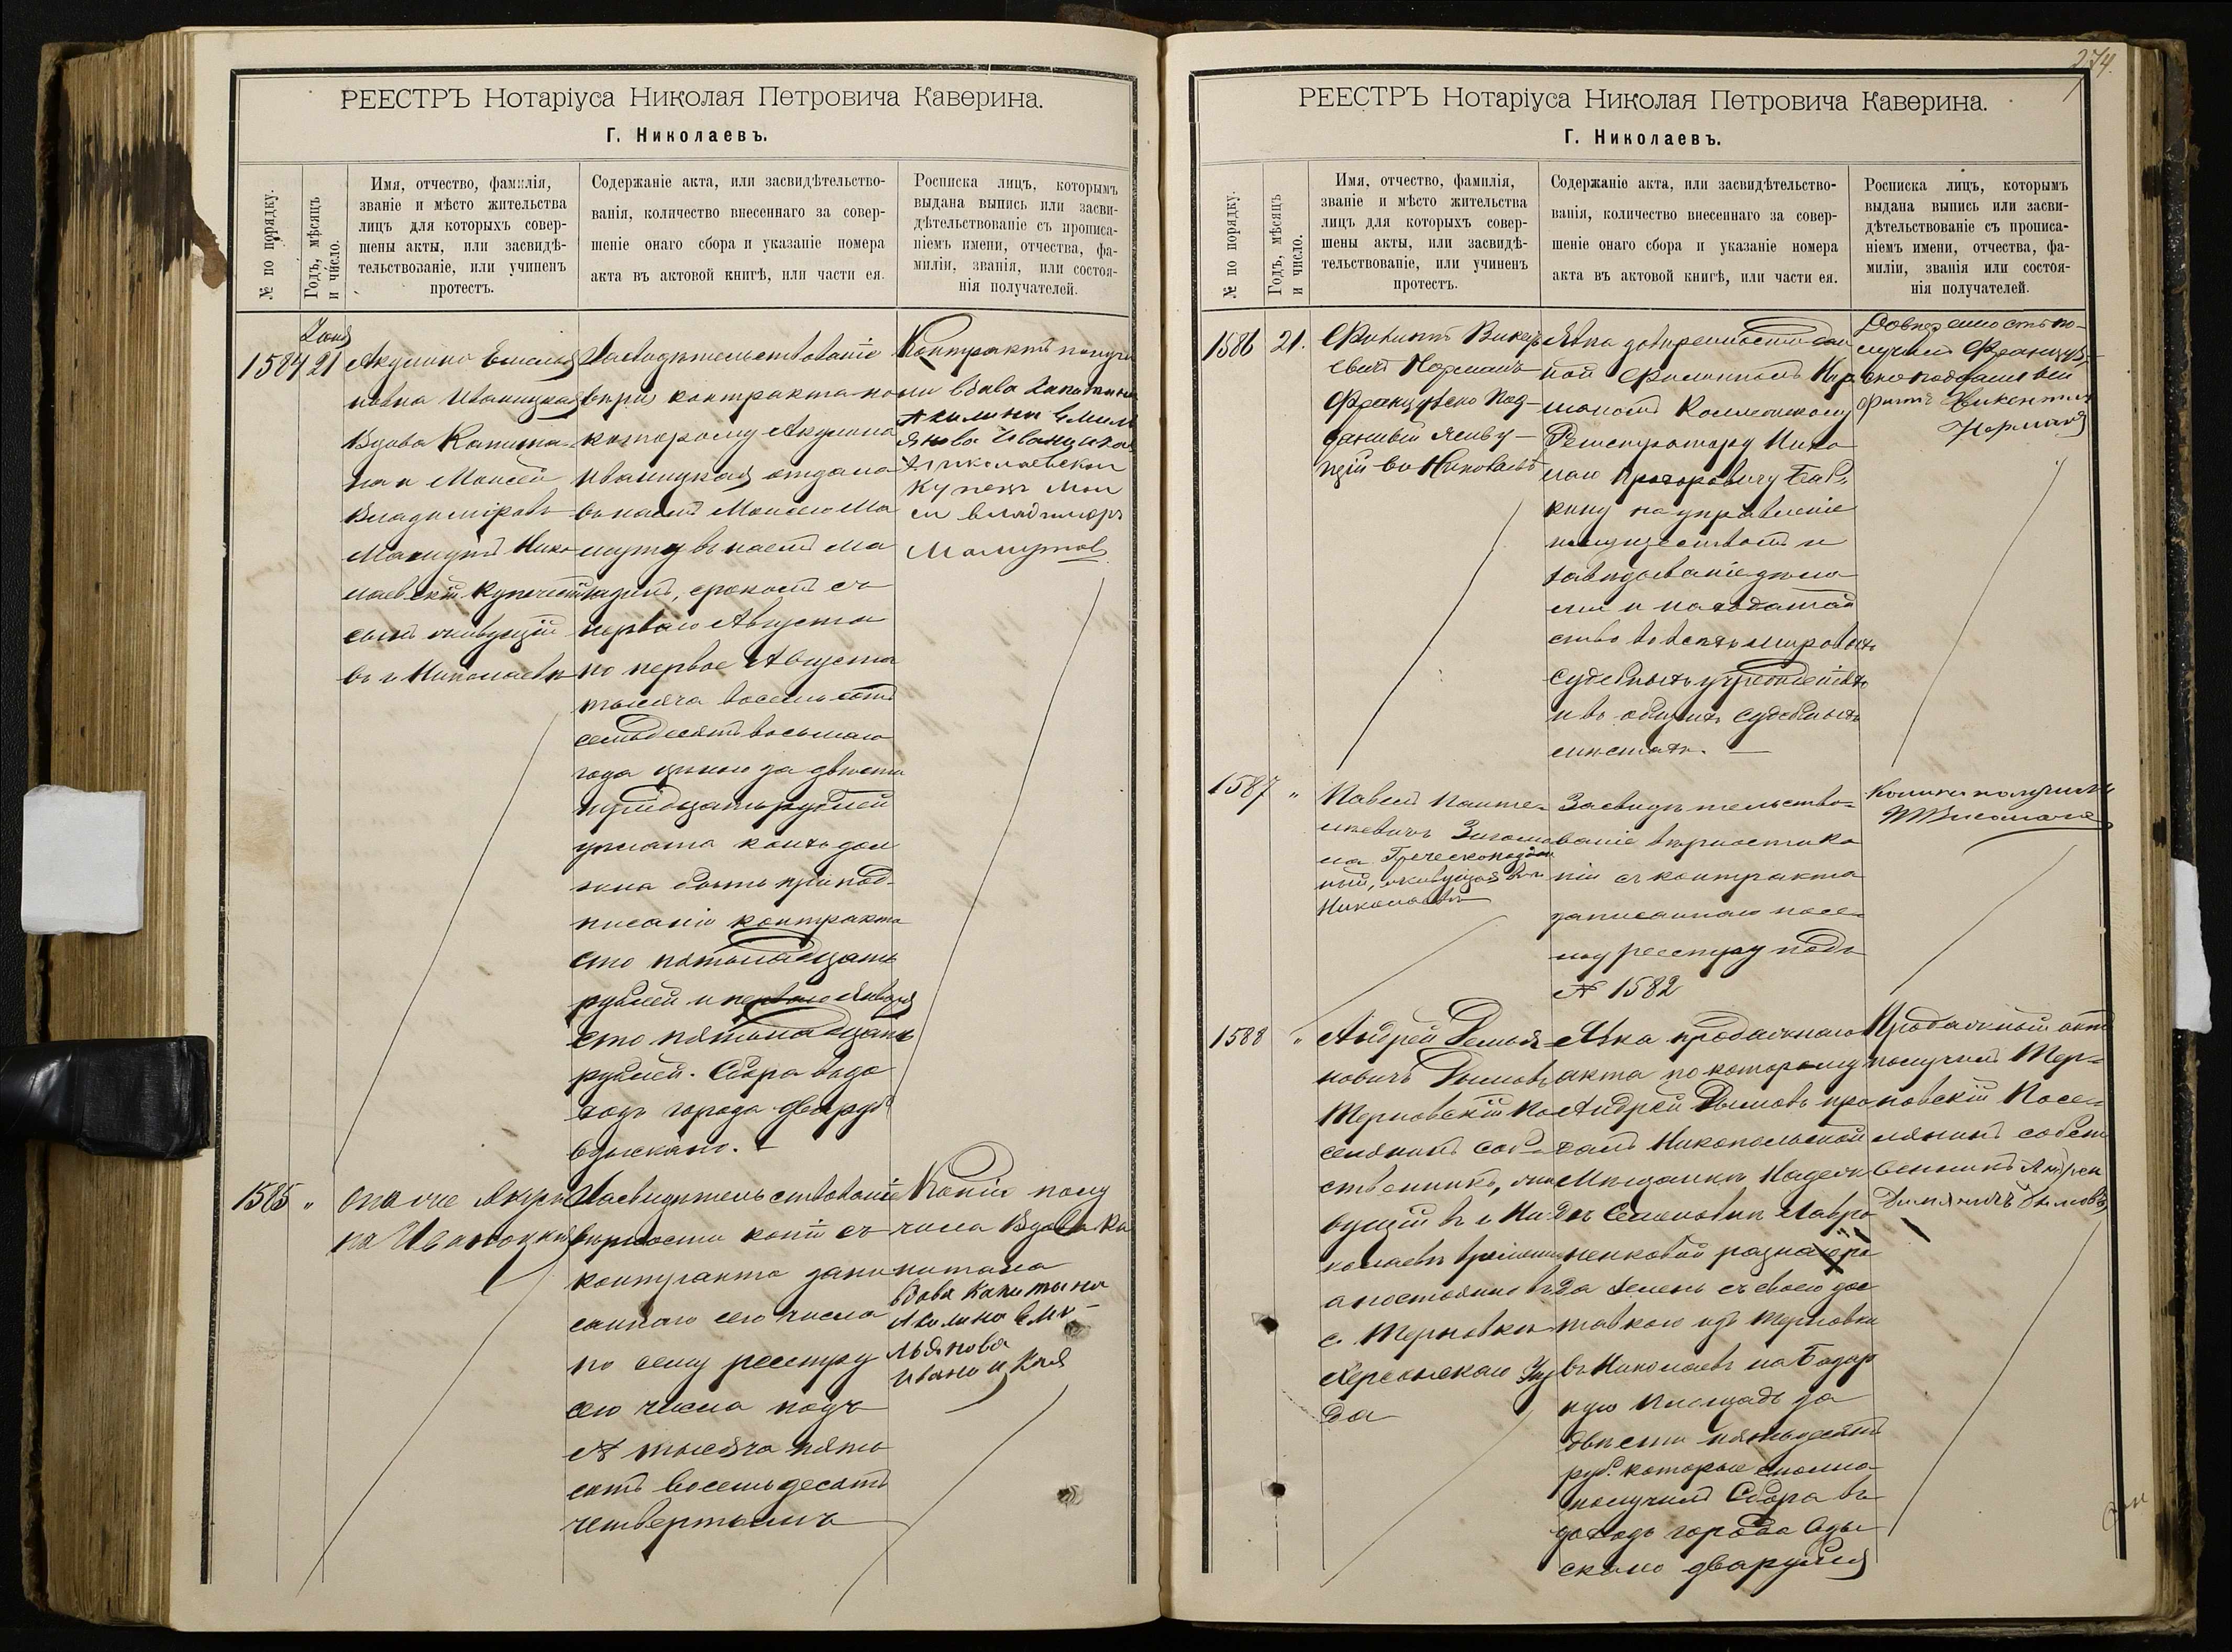 РЕЕСТРЪ Нотаріуса Николая Петровича Каверина.
Г. Николаевъ.
№ по порядку.
Годъ, мѣсяцъ
и число.
Имя, отчество, фамилія,
званіе и мѣсто жительства
лицъ для которыхъ совер-
шены акты, или засвидѣ-
тельствованіе, или учиненъ
протестъ.
Содержаніе акта, или засвидѣтельство-
ванія, количество внесеннаго за совер-
шеніе онаго сбора и указаніе номера
акта въ актовой книгѣ, или части ея.
Росписка лицъ, которымъ
выдана выпись или засви-
дѣтельствованіе съ прописа-
ніемъ имени, отчества, фа-
миліи, званія, или состоя-
нія получателей.
Іюня
1584 21
Акулина Емелья
новна Иваницкая
Вдова Капита-
на и Моисей
Владиміровъ
Николаевскій купеческій
сынъ живущій
въ г. Николаевѣ
Засвидѣтельствованіе
контракта по
которому Акулина
Иваницкая отдала
въ наемъ Моисею
въ наемъ ма
газинъ, срокомъ съ
перваго Августа
по первое Августа
тысяча восемьсотъ
семьдесятъ восьмаго
года цѣною за двѣсти
тридцать рублей
уплата коихъ дол
жна быть при под-
писаніи контракта
сто пятьнадцать
рублей и перваго Января
сто пятьнадцать
рублей. Сбора въ до
ходъ города два руб
взыскано.
Контрактъ получи
ли вдова Капитана
Акилина Емиль
янова Иваницкая
Николаевской
купецъ Мои
сей Владимиръ
1585 "
Она же Акули
на Иваницкая
Засвидѣтельствованіе
вѣрности копіи съ
контракта запи
саннаго сего числа
по сему реестру
сего числа подъ
№ тысяча пять
сотъ восемьдесятъ
четвертымъ
Копію полу
чила Вдова Ка
питана
вдова Капитана
Акилина Еми-
льянова
Иваницкая
274.
РЕЕСТРЪ Нотаріуса Николая Петровича Каверина.
Г. Николаевъ.
№ по порядку.
Годъ, мѣсяцъ
и число.
Имя, отчество, фамилія,
званіе и мѣсто жительства
лицъ для которыхъ совер-
шены акты, или засвидѣ-
тельствованіе, или учиненъ
протестъ.
Содержаніе акта, или засвидѣтельство-
ванія, количество внесеннаго за совер-
шеніе онаго сбора и указаніе номера
акта въ актовой книгѣ, или части ея.
Росписка лицъ, которымъ
выдана выпись или засви-
дѣтельствованіе съ прописа-
ніемъ имени, отчества, фа-
миліи, званія или состоя-
нія получателей.
1586 21.
Французско под-
данный живу-
щій въ Николаевѣ
Явка довѣренности дан
ной
Коллежскому
Регистратору Нико
лаю Прохоровичу
на управленіе
имуществомъ и
завѣдываніе дѣла
ми и ходатай
ство во всѣхъ мировыхъ
судебныхъ учрежденіяхъ
и въ общихъ судебныхъ
мѣстахъ.
Довѣренность по-
лучилъ Француз-
ско подданный
Викентій
Норманъ
1587 "
Павелъ Панте-
на Греческоподдан
ный, живущій въ г.
Николаевѣ
Засвидѣтельство-
ваніе вѣрности ко
піи съ контракта
записаннаго по се-
му реестру подъ
№ 1582
Копію получилъ
1588 "
Андрей Демья
новичъ Дымовъ
Терновскій по
селянинъ соб-
ственникъ, жи
вущій въ г. Ни
колаевѣ временно
а постоянно въ
с. Терновкѣ
Херсонскаго Уѣз
да
Явка продажнаго
акта по которому
Андрей Дымовъ про
далъ Никопольской
Мѣщанкѣ Надеж
дѣ Семеновнѣ Лаври
ненковой разнаго ро
да зелень съ своею дос
тавкою изъ Терновки
въ Николаевъ на Базар
ную площадь за
двѣсти пятьдесятъ
руб. которые сполна
получилъ Сбора въ
доходъ города взы
скано два рубля
Продажный актъ
получилъ Тер-
новскій Посе-
лянинъ собст
венникъ Андрей
Демяновичъ Дымовъ